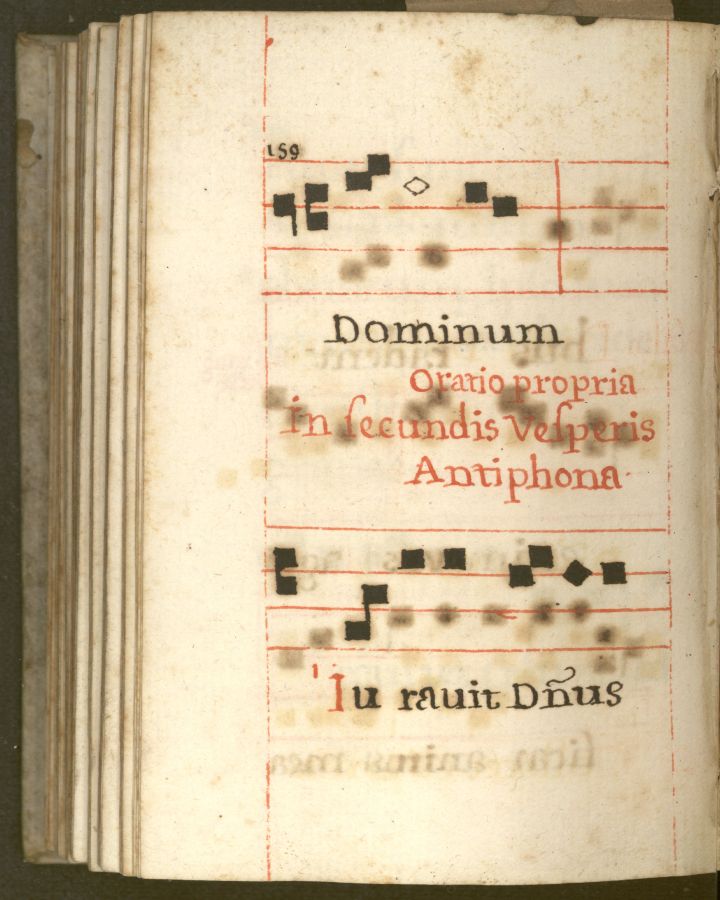 159
Dominum
Oratio propria
In secundis Vesperis
Antiphona
Iu rauit Dñus